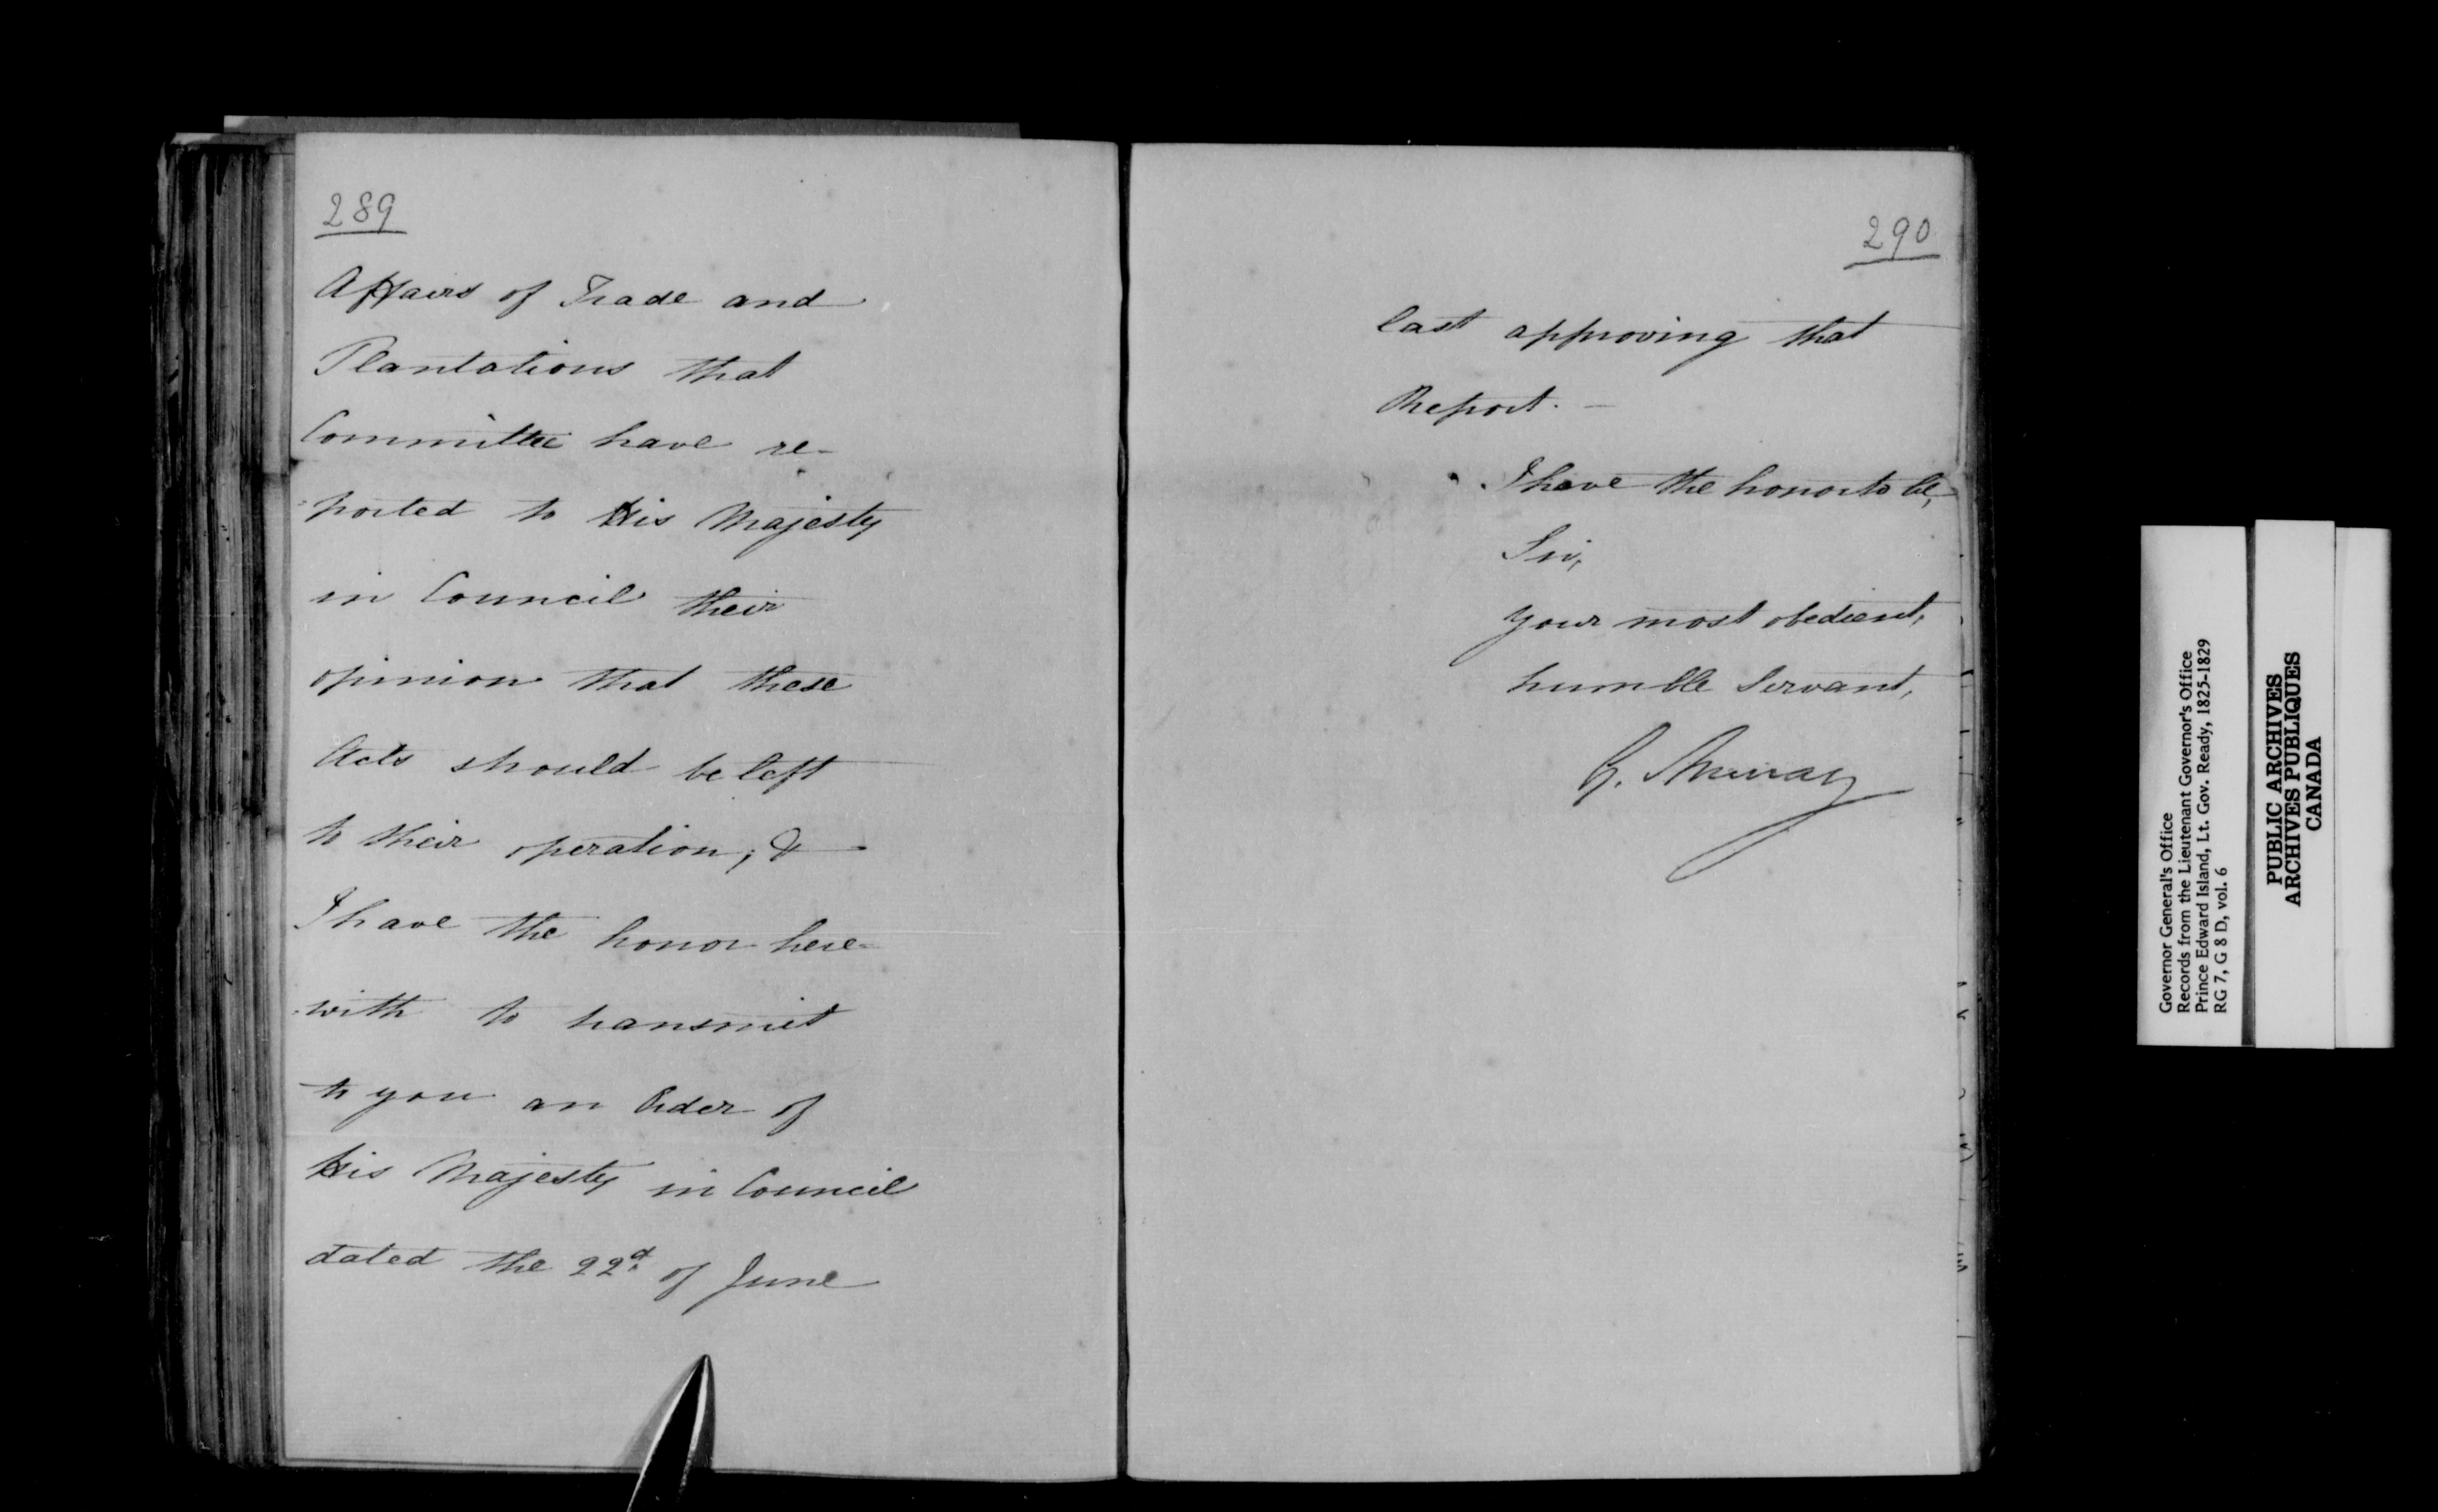 289
Affairs of Trade and
Plantations that
Committee have re-
-ported to His Majesty
in Council their
opinion that these
Acts should be left
to their operation; &
I have the honor here-
-with to transmit
to you an Order of
His Majesty in Council
dated the 22d of June
290
last approving that
Report. —
I have the honor to be,
Sir,
your most obedient,
humble Servant,
G. Murray
Governor General's Office
Records from the Lieutenant Governor's Office
Prince Edward Island, Lt. Gov. Ready, 1825-1829
RG 7, G 8 D, vol. 6
PUBLIC ARCHIVES
ARCHIVES PUBLIQUES
CANADA